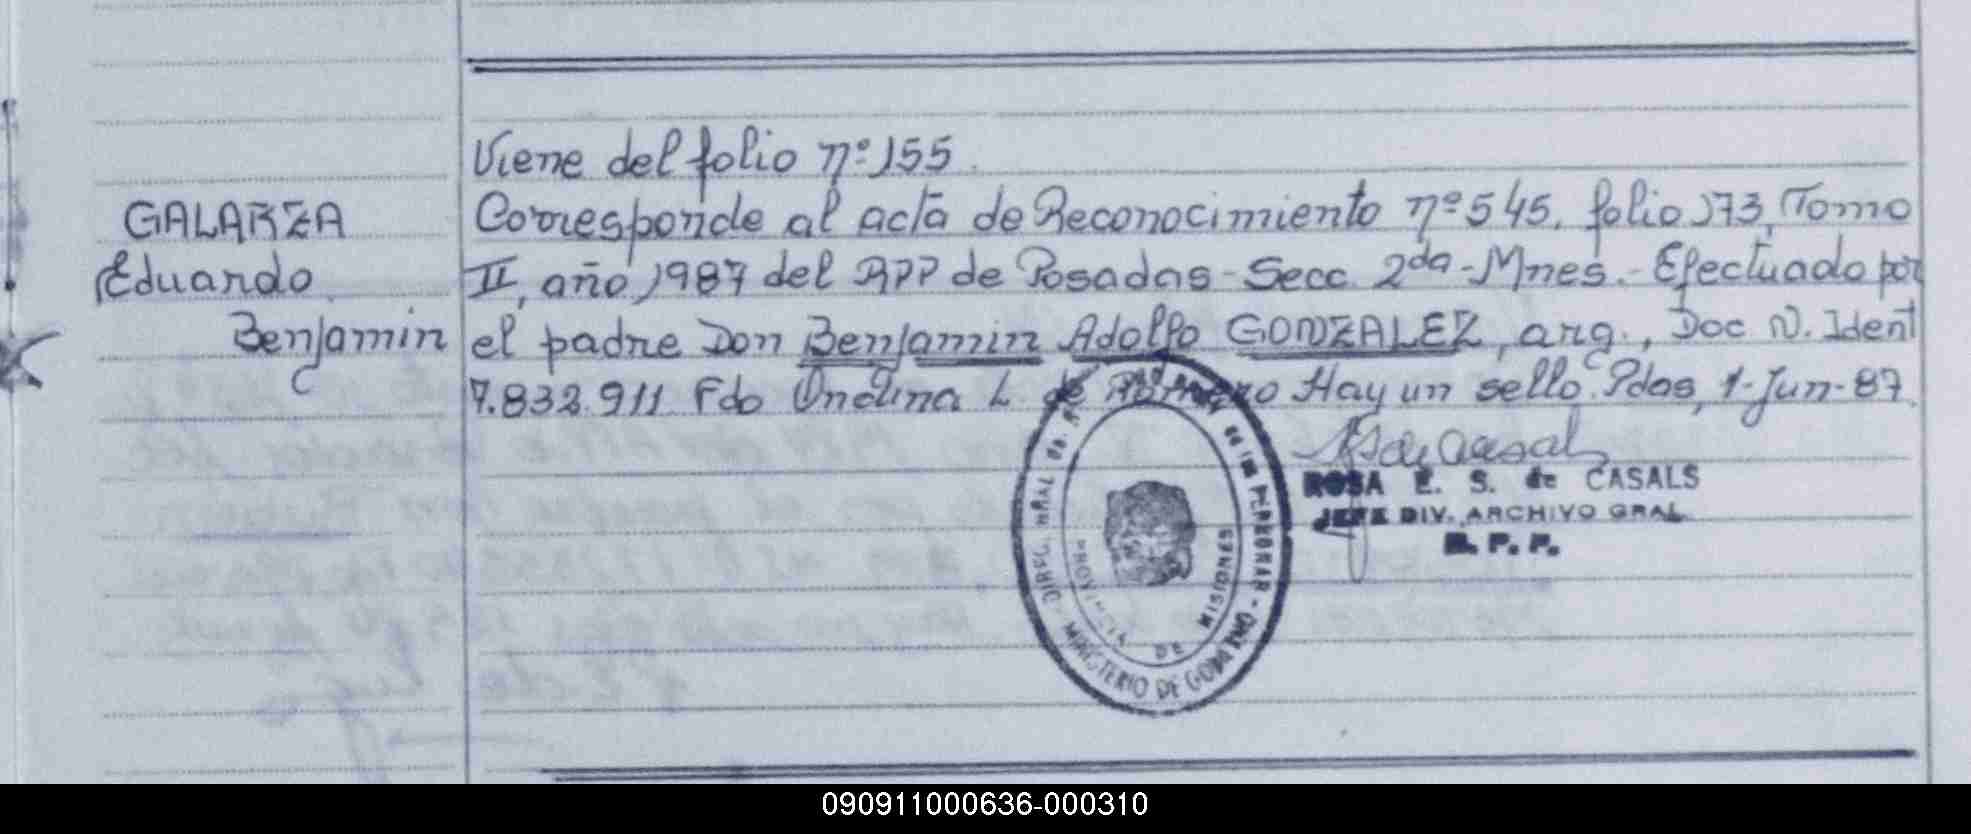 Viene del folio nº 155.
GALARZA
Eduardo
Benjamin
Corresponde al acta de Reconocimiento nº 545, folio 173, Tomo
II, año 1987 del RPP de Posadas - Secc. 2da - Mnes. - Efectuado por
el padre Don Benjamin Adolfo GONZALEZ, arg., Doc N. Ident
7.832.911 Fdo Ondina L. de Romero Hay un sello. Pdas, 1-Jun-87.
ROSA E. S. de CASALS
JEFE DIV. ARCHIVO GRAL
R. P. P.
DIREC. GRAL DE LAS PERSONAS - MINISTERIO DE GOBIERNO
PROVINCIA DE MISIONES
090911000636-000310